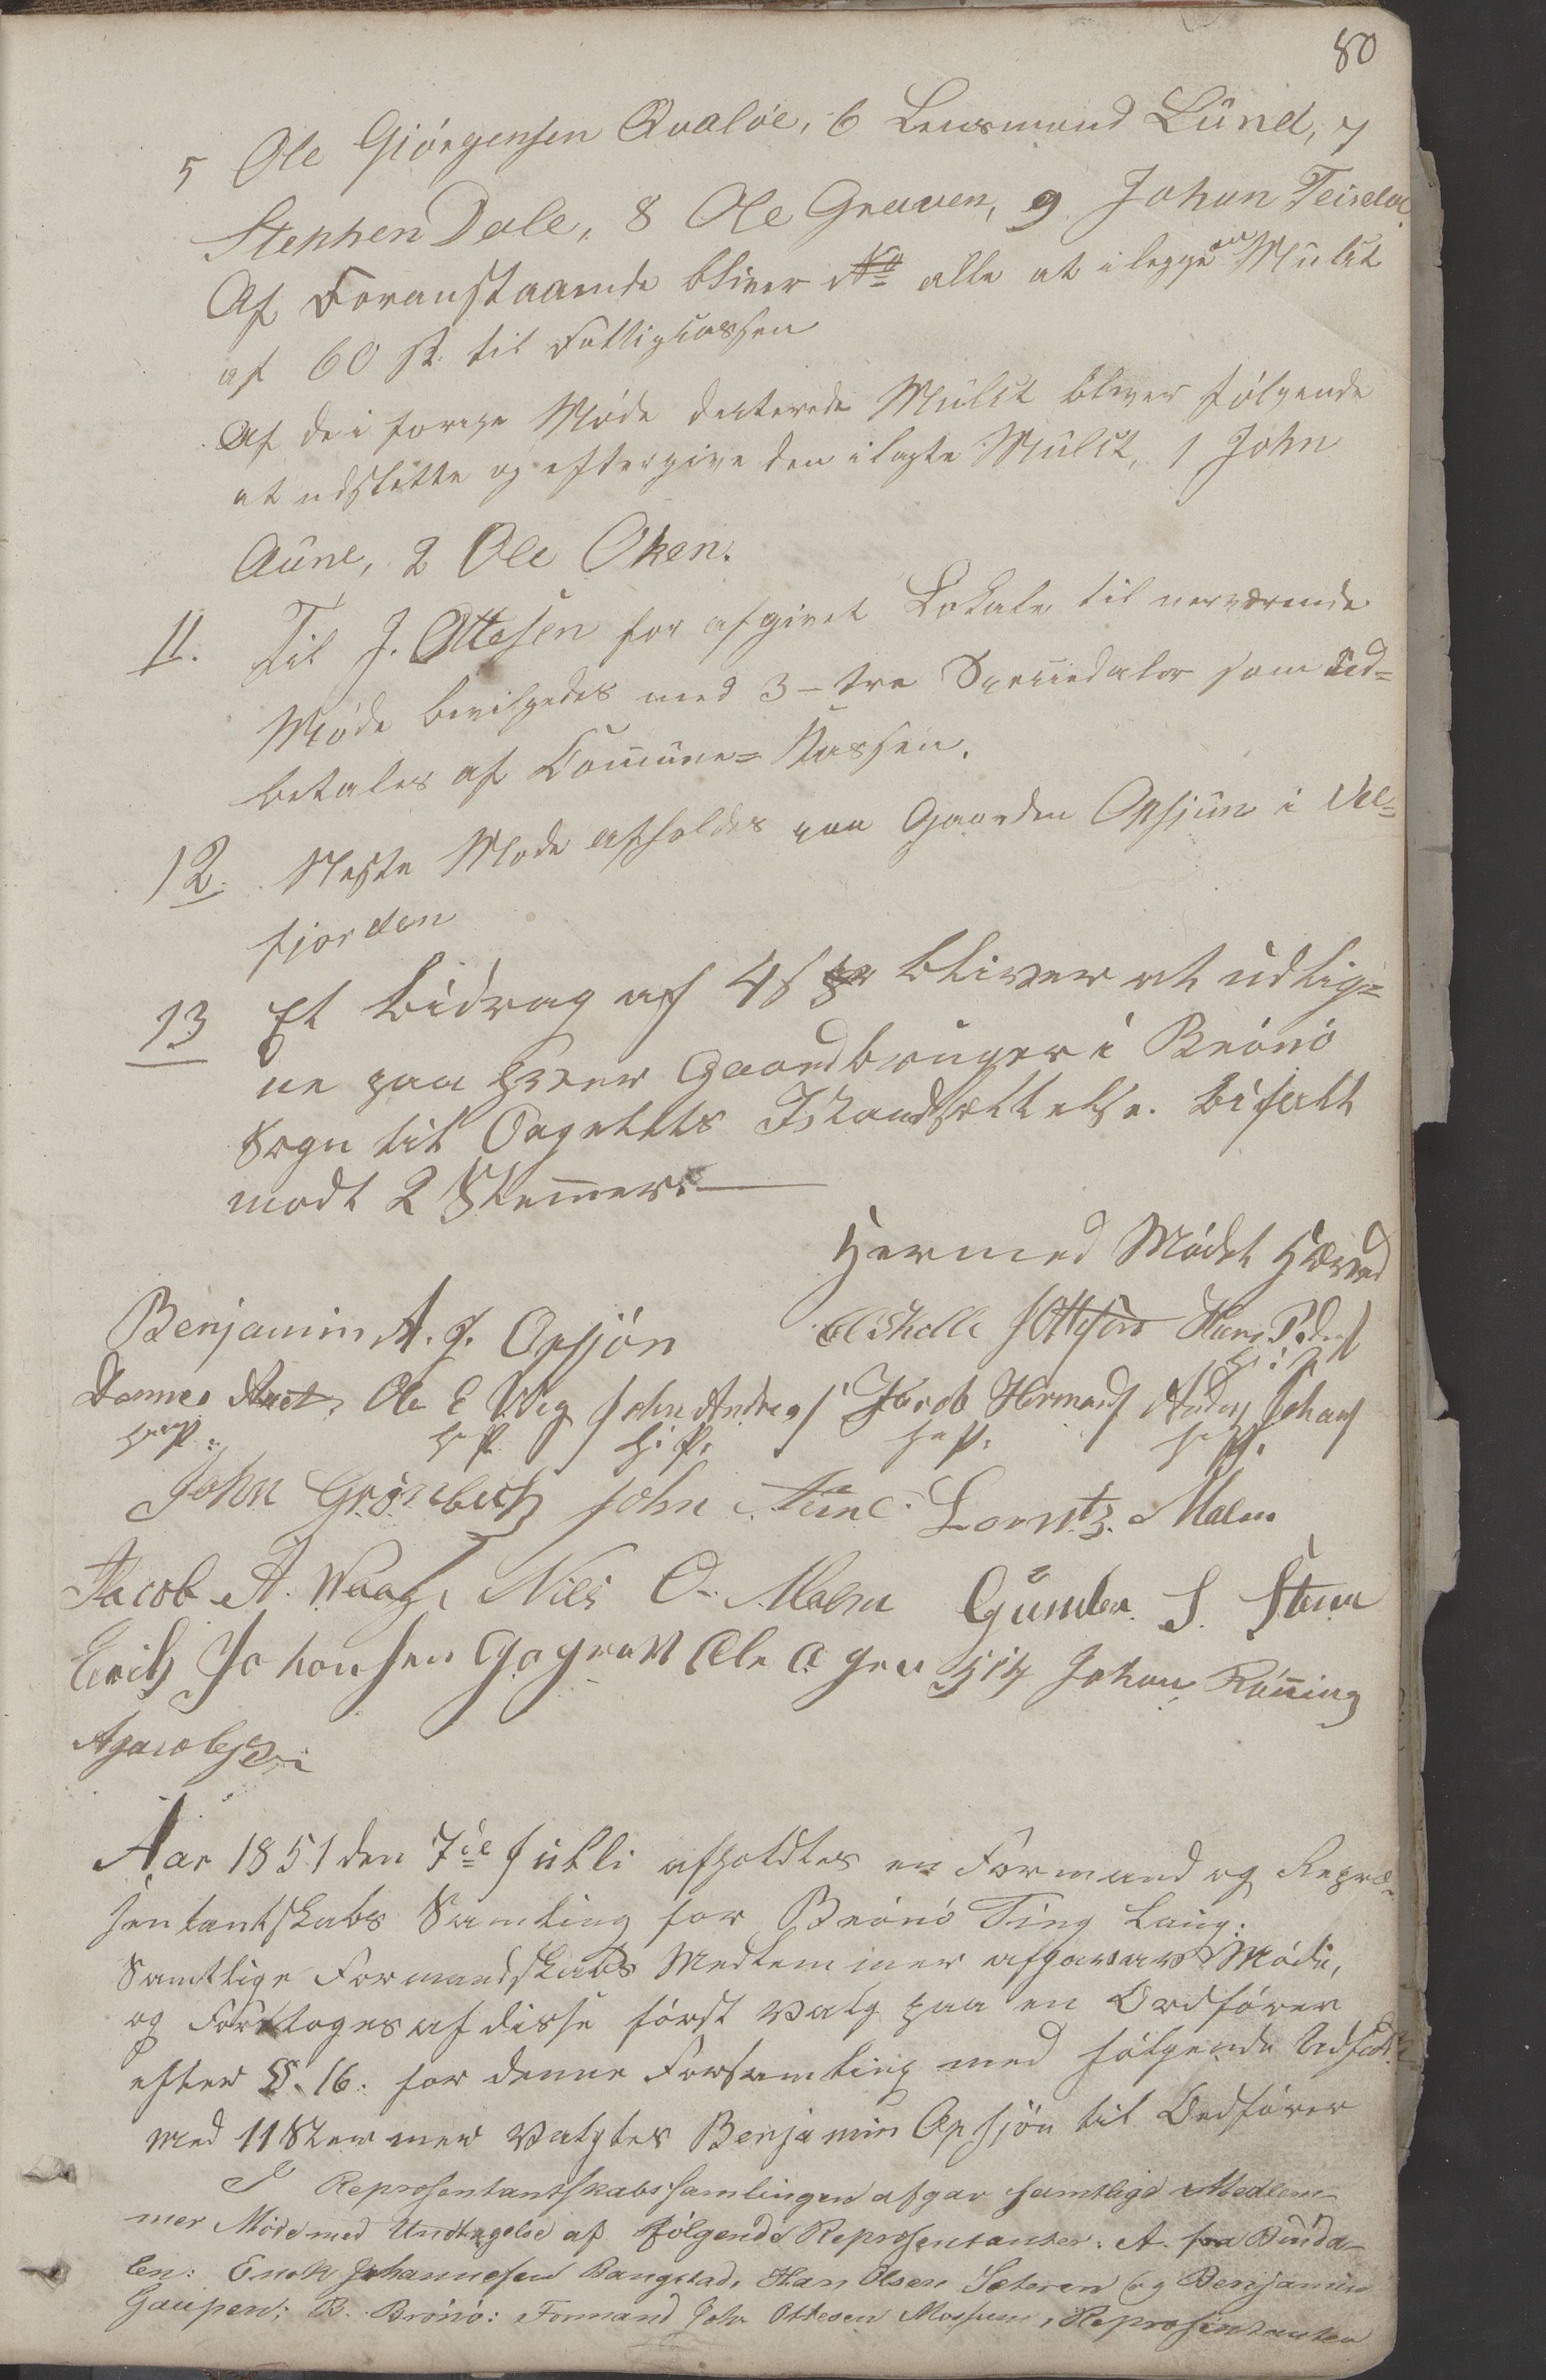 80
5 Ole Gjörgensen Qvaløe, 6 Lensmand Lund, 7
Stephen Dale, 8 Ole Graven, 9 Johan Teisdal
Af Foranstaaende bliver alle at ilegge en Mulct
af 60 sk: til Fattigcassen
Af de i forrige Møde dicterede Mulct bliver følgende
at udslette og eftergive den ilagte Mulct, 1 John
Aune, 2 Ole Oken.
11. Til J. Ottesen for afgivet Lokale til nerværende
Møde bevilgedes med 3 – tre Speciedaler som ud=
betales af Commune=Kassen.
12. Neste Møde afholdes paa Gaarden Opsjøn i Vel=
fjorden
13 Et bidrag af 4 s bliver at udlig=
ne paa hver Gaardbruger i Brönö
Sogn til Orgelets Istandsættelse. bifalt
modt 2 Stemmer.
Hermed Mödet Hævet
Benjamin A. J. Opsjön JOttesen Hans Peders
m: i P
Ole E Vig John Andreas Jacob Hermans Anders Johans
m P: m P h: P. m. P. m P.
John Grønbech John Aune. Lorntz. Malm
Jacob A. Vaag, Nils O. Malm Gunder. S. Steen
Erich Johansen Ole Johan Rönning
AJacobsen
Aar 1851 den 7de Julli afholdtes en Formand og Repræ=
sentantskabs Samling for Brönö Ting laug.
Samtlige Formandskabs Medlemmer afgavav Möde,
og Foretoges af disse först valg paa en Ordförer
efter §. 16. for denne Forsamling med fölgende Udfald
Med 11 Stemmer Valgtes Benjamin Opsjön til Ordförer
I Reprosentantskabssamlingen afgav samtlige Medlem-
mer Møde med Undtagelse af følgende Reprosentanter. A. fra Binda-
len: Enok Johannesen Bangstad, Hans Olsen Sæteren og Benjamin
Gaupen; B. Brønø: Formand Joh. Ottesen Mossem, Reprosentanten